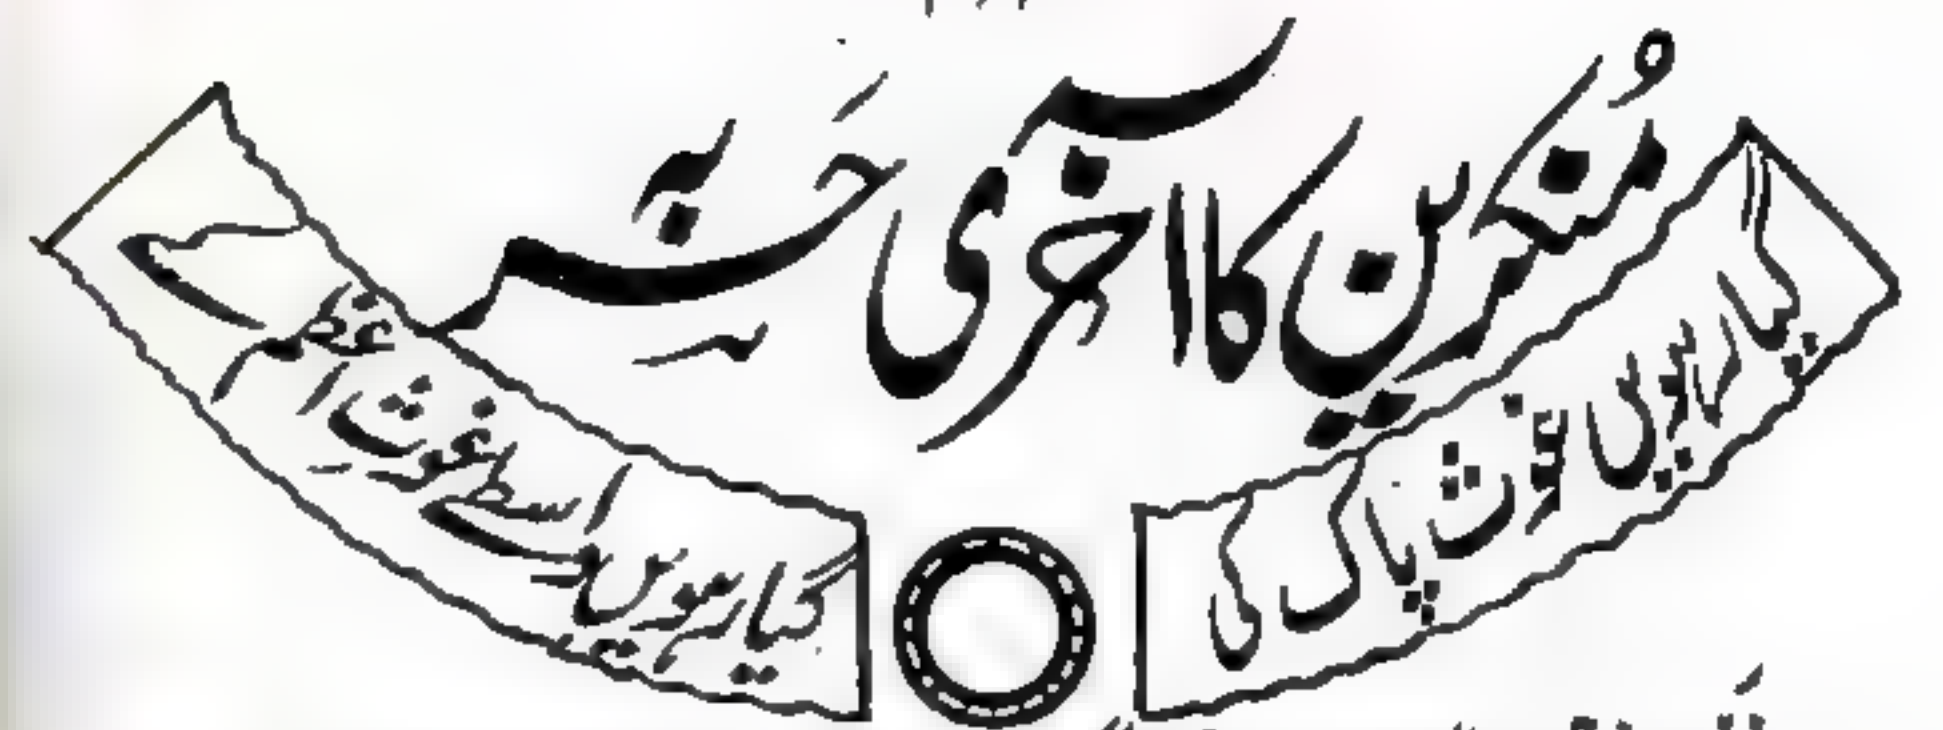 مُنکرین کا آخری حَربہ
گیارہویں غوث پاک کی
گیارہویں واسطے غوث اعظم کے